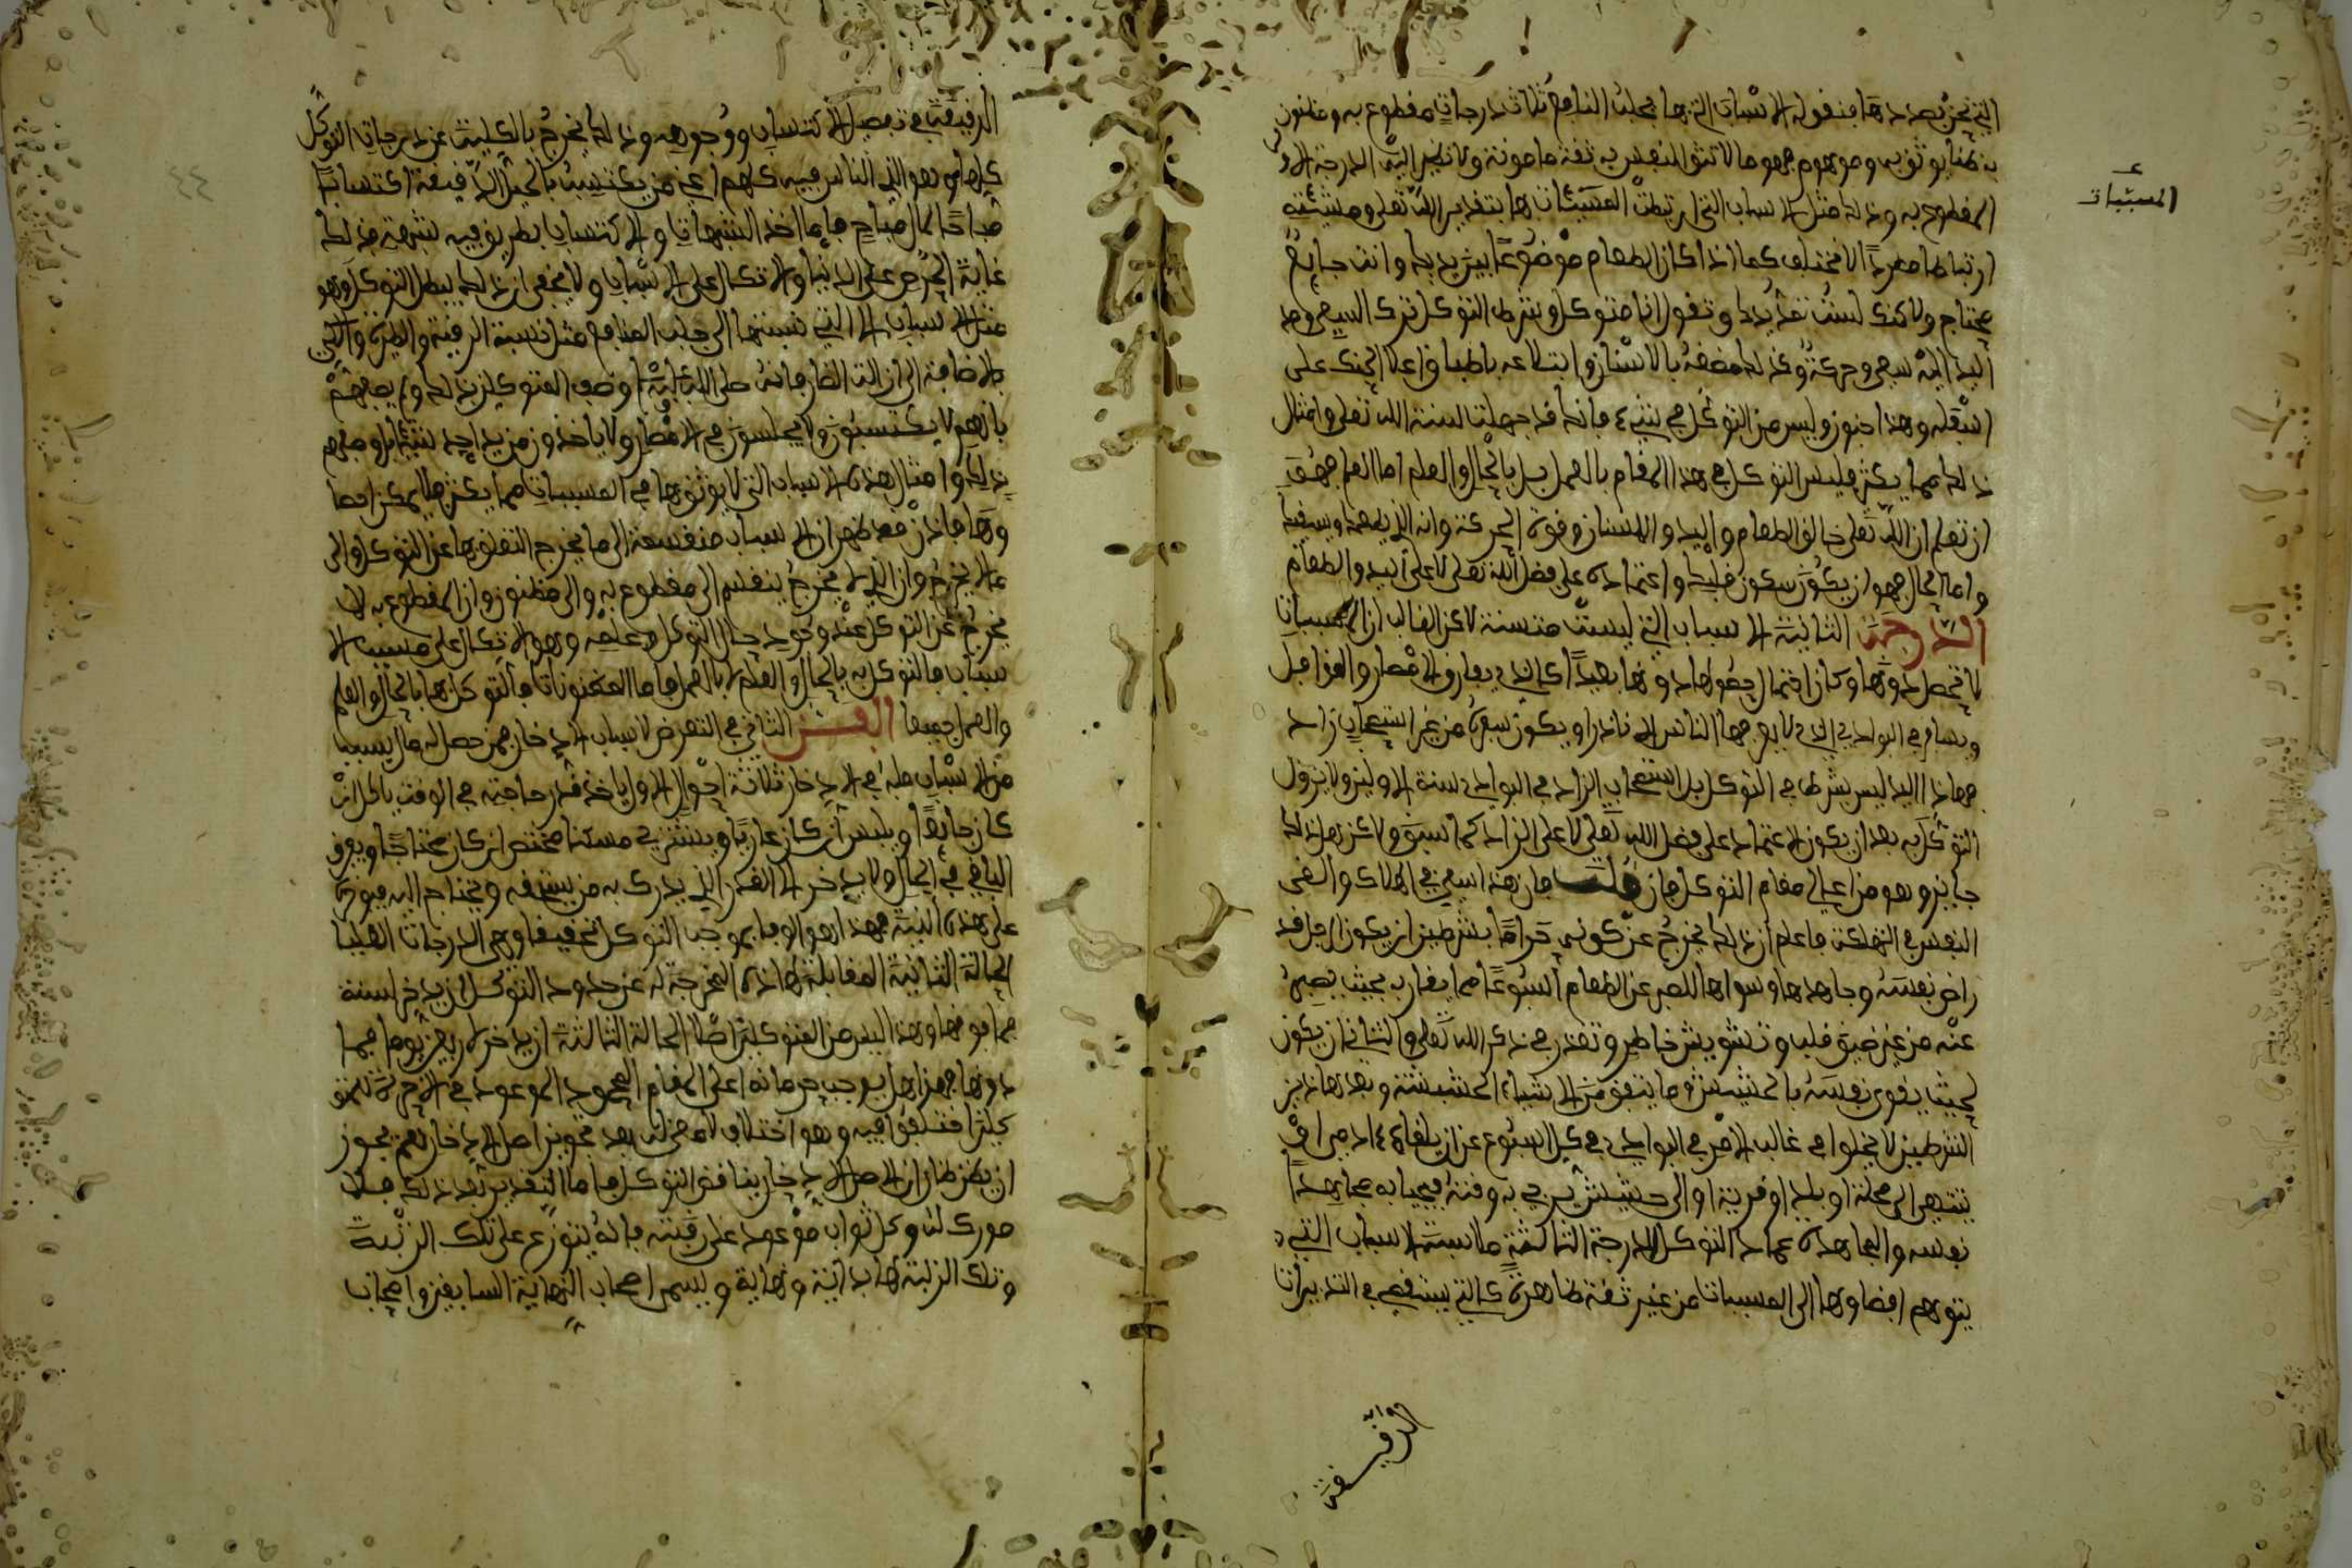 التي نحن بصددها فنقول الاسباب التي بها يجلب النافع ثلاث درجات مقطوع به ومظنون
به ظنا يوثق به وموهوم وهما لا تثق النفس به ثقة مامونة ولا تطمئن اليه الدرجة الاولى
المقطوع به وذلك مثل الاسباب التي ارتبطت المسببات بها بتقدير الله تعلى ومشيئته
ارتباطا مطردا لا يختلف كما اذا كان الطعام موضوعا بين يديك وانت جايع
محتاج ولاكنك لست تمد يدك وتقول انا متوكل وشرط التوكل ترك السعي ومد
اليد اليه سعي وحركة وكذلك مضغه بالاسنان وابتلاعه باطباق اعلا الحنك على
اسفله وهذا جنون وليس من التوكل في شيء فانك قد جهلت سنة الله تعلى وامثال
ذلك مما يكثر فليس التوكل في هذا المقام بالعمل بل بالحال والعلم اما العلم فهو
ان تعلم ان الله تعلى خالق الطعام واليد والاسنان وقوة الحركة وانه الذي يطعمك ويسقيك
واما الحال فهو ان يكون سكون قلبك واعتمادك على فضل الله تعلى لا على اليد والطعام
الدرجة الثانية الاسباب التي ليست متيقنة لاكن الغالب ان المسببات
لا تحصل دونها وكان احتمال حصولها دونها بعيدا كالذي يفارق الامصار والقوافل
ويسافر في البوادي التي لا يطرقها الناس الا نادرا ويكون سفره من غير استصحاب زاد
فهاذا ليس بشرط في التوكل بل استصحاب الزاد في البوادي سنة الاولين ولا يزول
التوكل به بعد ان يكون الاعتماد على فضل الله تعلى لا على الزاد كما سبق ولاكن فعل ذلك
جايز وهو من اعلى مقام التوكل فان قلت فان هذا سعي في الهلاك والقى
النفس في التهلكة فاعلم ان ذلك يخرج عن كونه حراما بشرطين ان يكون الرجل قد
راض نفسه وجاهدها وسواها للصبر عن الطعام اسبوعا فما يقاربه بحيث يصبر
عنه من غير ضيق قلب وتشويش خاطر وتعذر في ذكر الله تعلى والثاني ان يكون
بحيث يقوي نفسه بالحشيش وما يتفق من الاشياء الخشيشة وبعد هاذين
الشرطين لا يخلوا في غالب الامر في البوادي في كل اسبوع عن ان يلقاه ادمي او
ينتهي الى محلة او بلد او قرية او الى حشيش يزجي به وقته فيحيا به مجاهدا
نفسه والمجاهدة عماد التوكل الدرجة الثالثة ملابسة الاسباب التي
يتوهم افضاوها الى المسببات من غير ثقة ظاهرة كالتي يستقصي في التدبيرات
المسببات
الدقيقة
الدقيقة في تفصيل الاكتساب ووجوهه وذلك يخرج بالكلية عن درجات التوكل
كلها وهو الذي الناس فيه كلهم اعني من يكتسب بالحيل الدقيقة اكتسابا
مباحا لمال مباح فاما اخذ الشبهات والاكتساب بطريق فيه شبهة فذلك
غاية الحرص على الدنيا والاتكال على الاسباب ولا يخفى ان ذلك يبطل التوكل وهو
مثل الاسباب التي نسبتها الى جلب المنافع مثل نسبة الرقية والطيرة والكي
بالاضافة الى ازالة الضار فانه صلى الله عليه وصف المتوكلين بذلك ولم يصفهم
بانهم لا يكتسبون ولا يجلسون في الامصار ولا ياخذون من يد احد شيئا بل وصفهم
بذلك وامثال هذه الاسباب التي لا يوثق بها في المسببات مما يكثر فلا يمكن احصا
وها فاذن فقد ظهر ان الاسباب منقسمة الى ما يخرج التعلق بها عن التوكل والى
ما لا يخرج وان الذي لا يخرج ينقسم الى مقطوع به والى مظنون وان المقطوع به لا
يخرج عن التوكل عند وجود حال التوكل وعلمه وهو الاتكال على مسبب الا
سباب فالتوكل به بالحال والعلم لا بالعمل واما المظنونات فالتوكل بها بالحال والعلم
والعمل جميعا الفن الثاني في التعرض لاسباب الادخار فمن حصل له مال بسبب
من الاسباب فله في الادخار ثلاثة احوال الاول ياخذ قدر حاجته في الوقت ياكل ان
كان جايعا ويلبس ان كان عاريا ويشتري مسكنا مختصرا ان كان محتاجا ويفرق
الباقي في الحال ولا يدخر الا القدر الذي يدرك به من يستحقه ويحتاج اليه فينوي
على هذه النية فهذا هو الوفا بموجب التوكل تحقيقا وهي الدرجات العليا
الحالة الثانية المقابلة لهاذه المخرجة له عن حدود التوكل ان يدخر لسنة
فما فوقها وهذا ليس من المتوكلين اصلا الحالة الثالثة ان يدخر لاربعين يوما فما
دونها فهذا هل يوجب حرمانه على المقام المحمود الموعود في الاخرة للمتو
كلين اختلفوا فيه وهو اختلاف لا معنى له بعد تجويز اصل الادخار نعم يجوز
ان يظن ظان ان اصل الادخار يناقض التوكل واما التقدير بعد ذلك فلا
مدرك له وكل ثواب موعود على رتبته فانه يتوزع على تلك الرتبة
وتلك الرتبة لها بداية ونهاية ويسمى اصحاب النهاية السابقين واصحاب